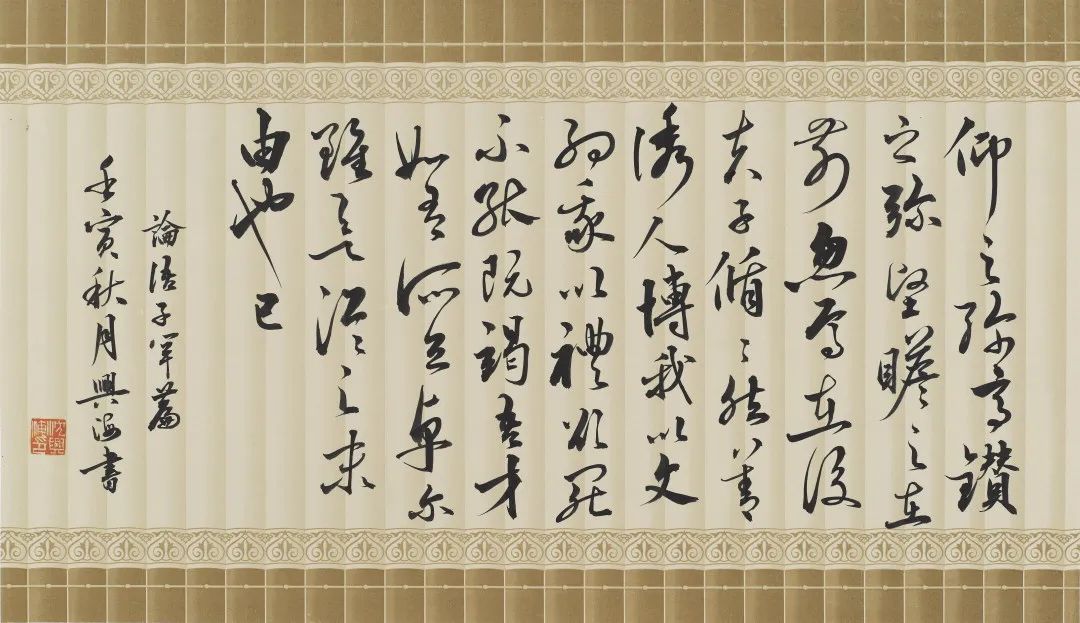 仰之弥高鑽
之弥堅瞻之在
前忽焉在後
夫子循〻然善
誘人博我以文
約我以禮欲罷
不能既竭吾才
如有所立卓尔
雖欲從之末
由也已
論語子罕篇
壬寅秋月興海書